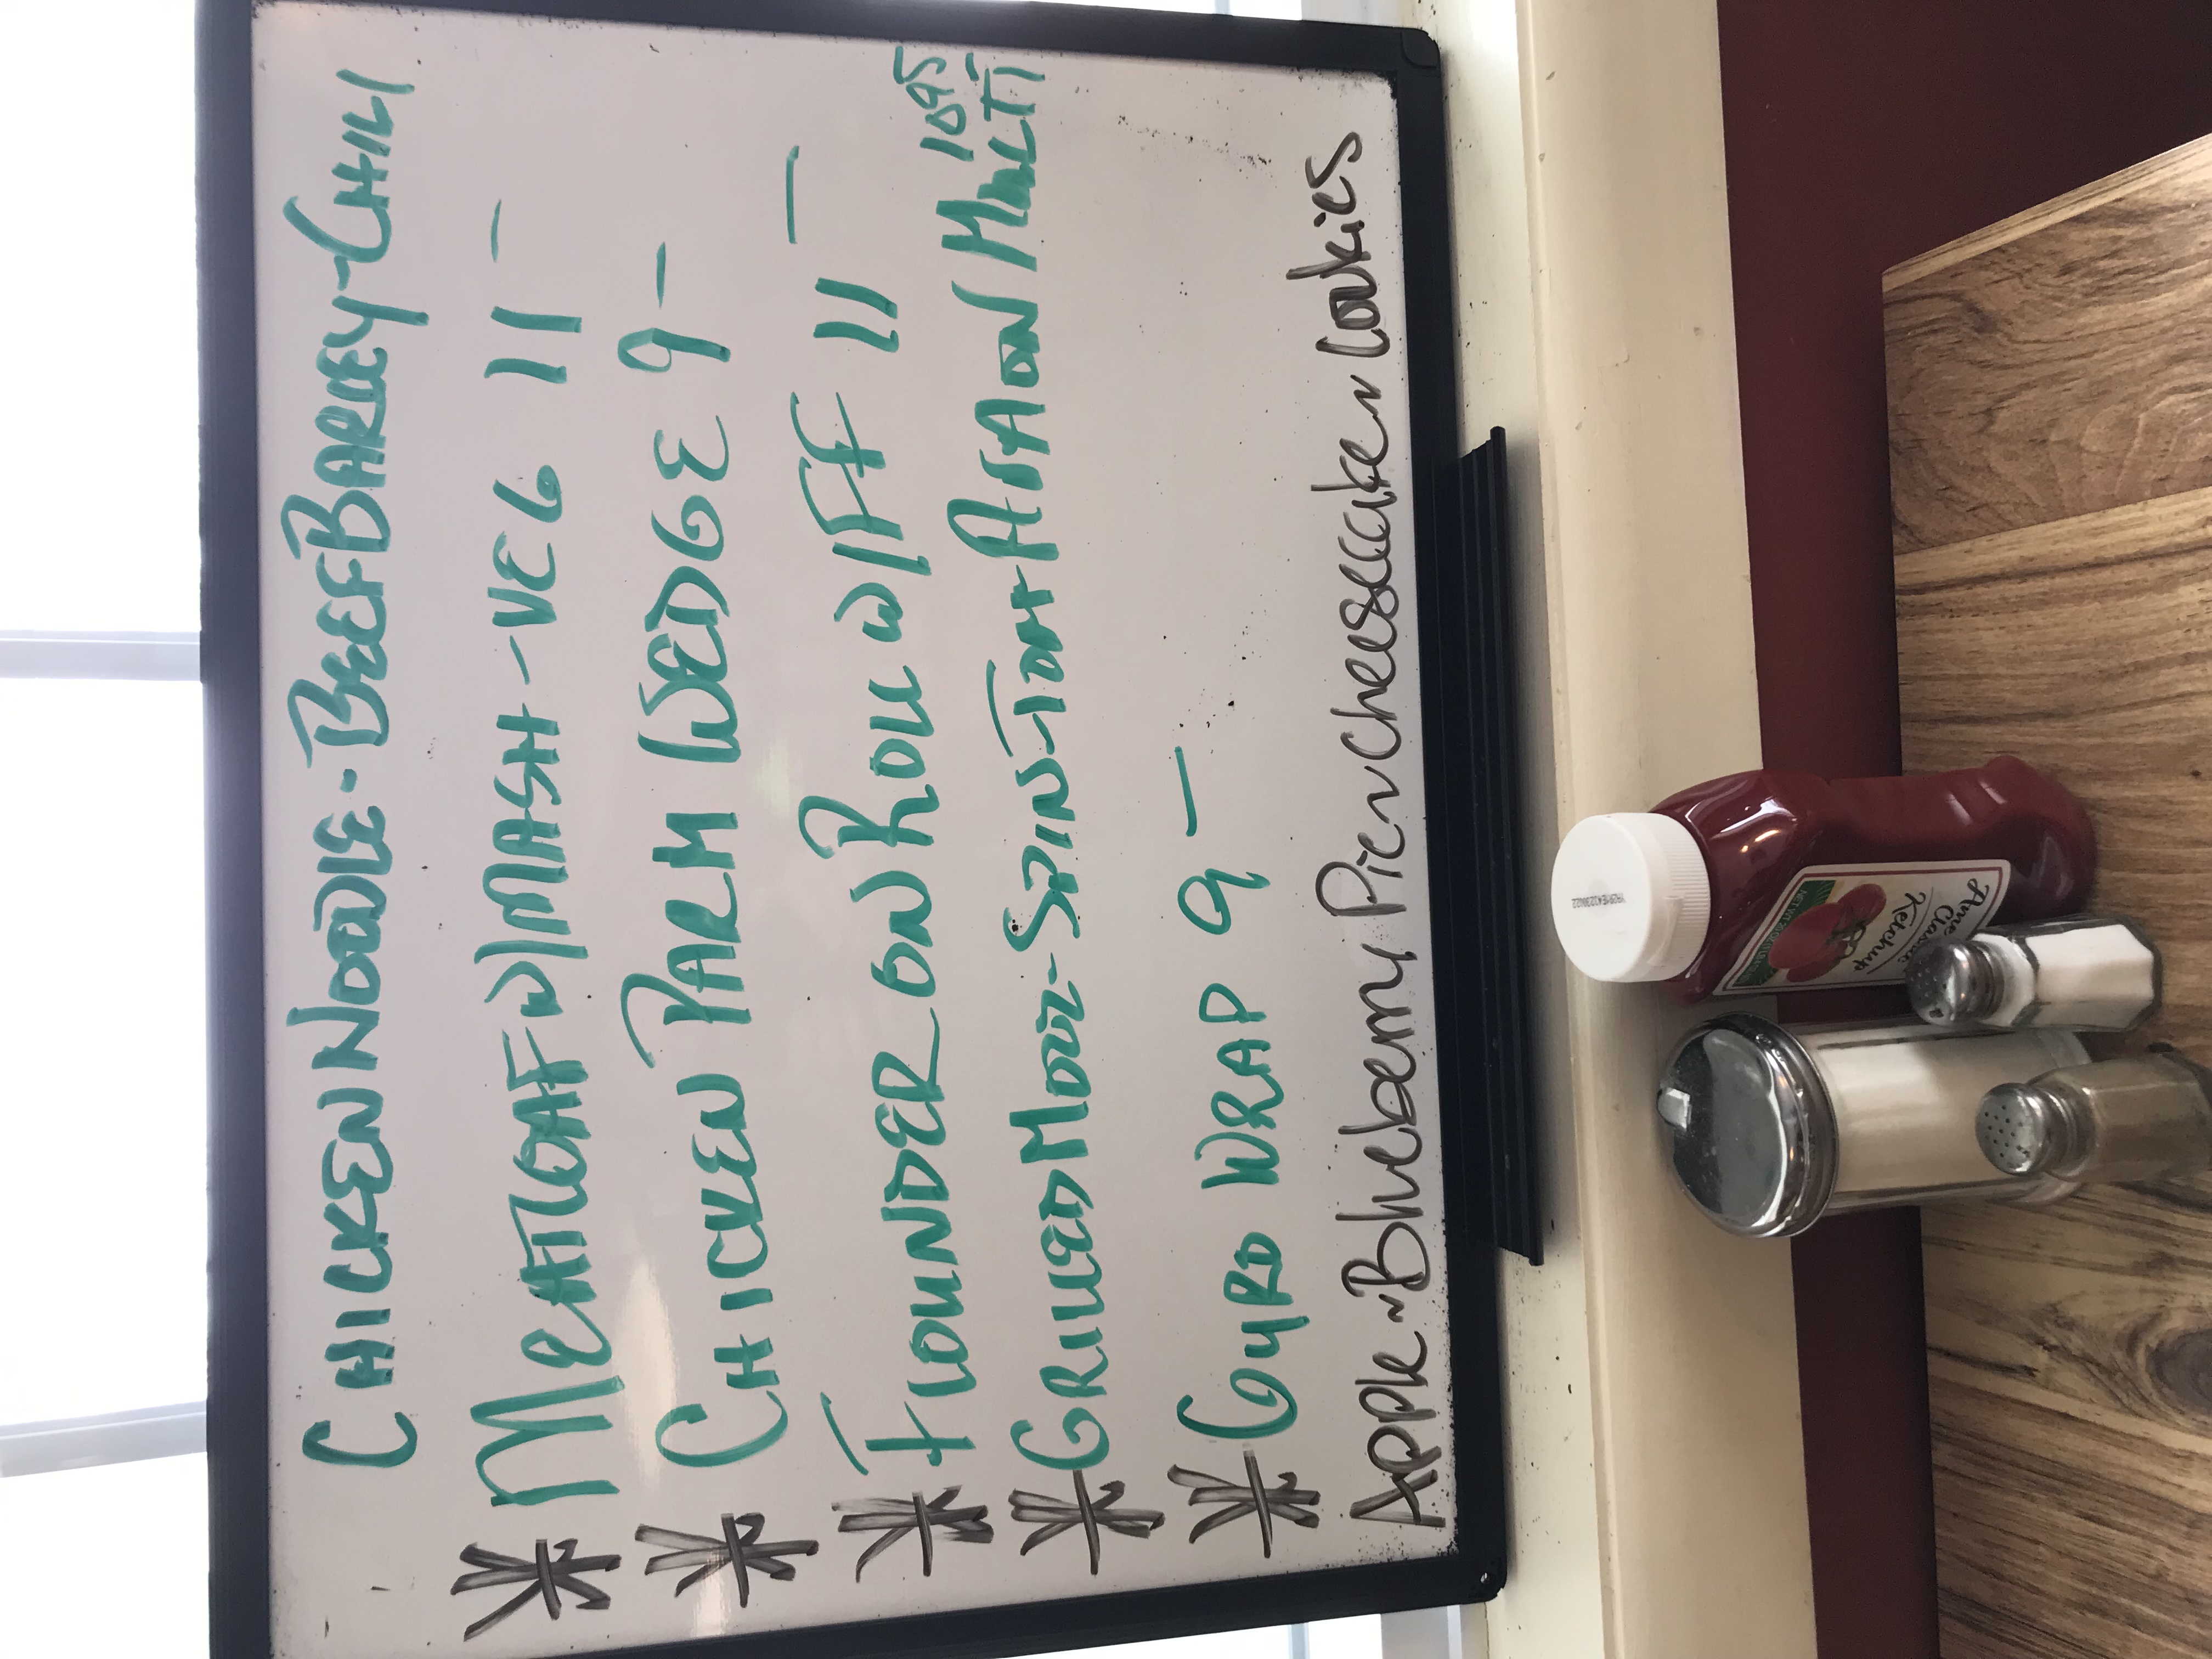 CHICKEN NOODLE - BEEF BARLEY - CHILI
* MEATLOAF W/MASH - VEG 11 -
* CHICKEN PARM WEDGE 9 -
* FLOUNDER ON ROLL W/FF 11 -
* GRILLED MOZZ - SPIN - TOM + AVA ON MULTI 10 95
* GYRO WRAP 9 -
Apple ~ Blueberry Pie ~ Cheesecake ~ Cookies
Ketchup